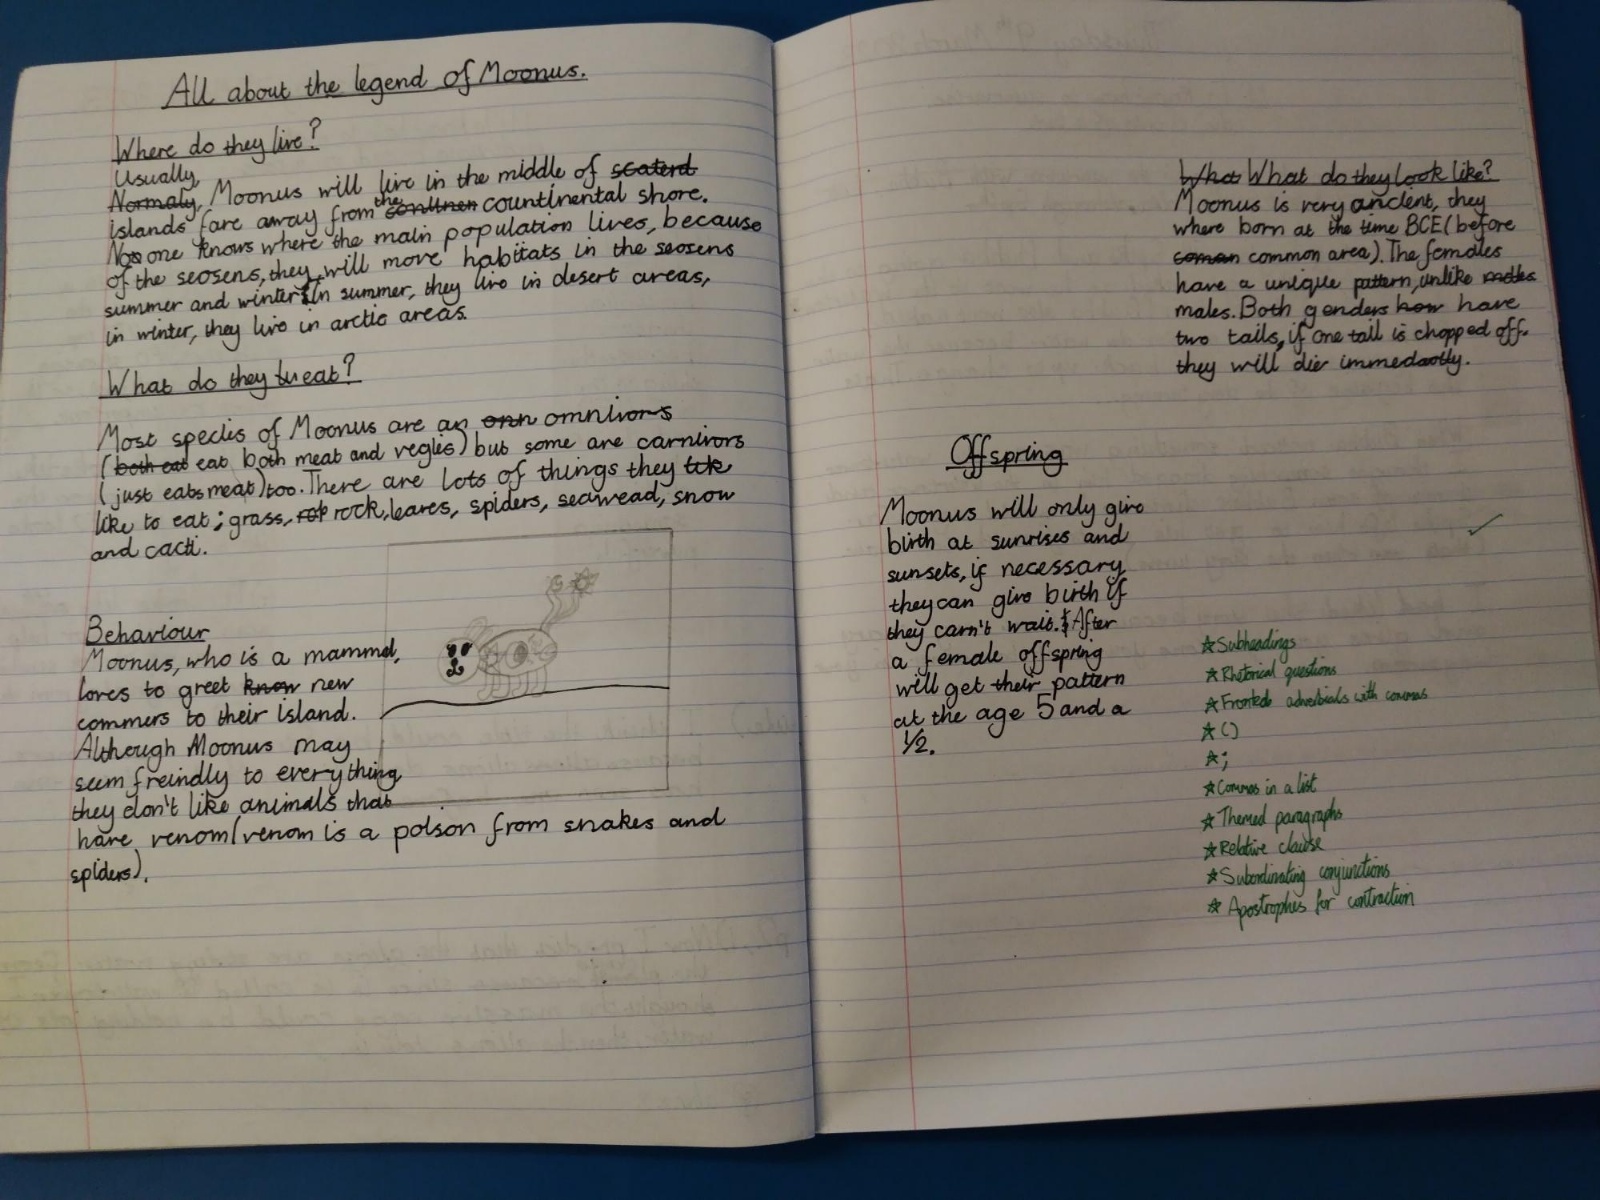 All about the legend of Moonus.
Where do they live?
Usually,
Normaly, Moonus will live in the middle of scaterd
islands fare away from the continen countinental shore.
No one knows where the main population lives, because
of the seosens, they will move habitats in the seosens
summer and winter. In summer, they live in desert areas,
in winter, they live in arctic areas.
What do they eat?
Most species of Moonus are an omn omnivors
(both eat eat both meat and vegies) but some are carnivors
(just eats meat) too. There are lots of things they
like to eat; grass, rock, leaves, spiders, seawead, snow
and cacti.
Behaviour
Moonus, who is a mammel,
loves to greet know new
commers to their island.
Although Moonus may
seem freindly to everything
they don't like animals that
have venom (venom is a poison from snakes and
spiders).
What What do they look like?
Moonus is very ancient, they
where born at the time BCE (before
coman common area). The females
have a unique pattern, unlike
males. Both genders how have
two tails, if one tail is chopped off
they will die immedaotly.
Offspring
Moonus will only give
birth at sunrises and
sunsets, if necessary
they can give birth if
they carn't wait. After
a female offspring
will get their pattern
at the age 5 and a
1/2.
☆ Subheadings
☆ Rhetorical questions
☆ Fronted adverbials with commas
☆ ()
☆ ;
☆ Commas in a list
☆ Themed paragraphs
☆ Relative clause
☆ Subordinating conjunctions
☆ Apostrophes for contraction